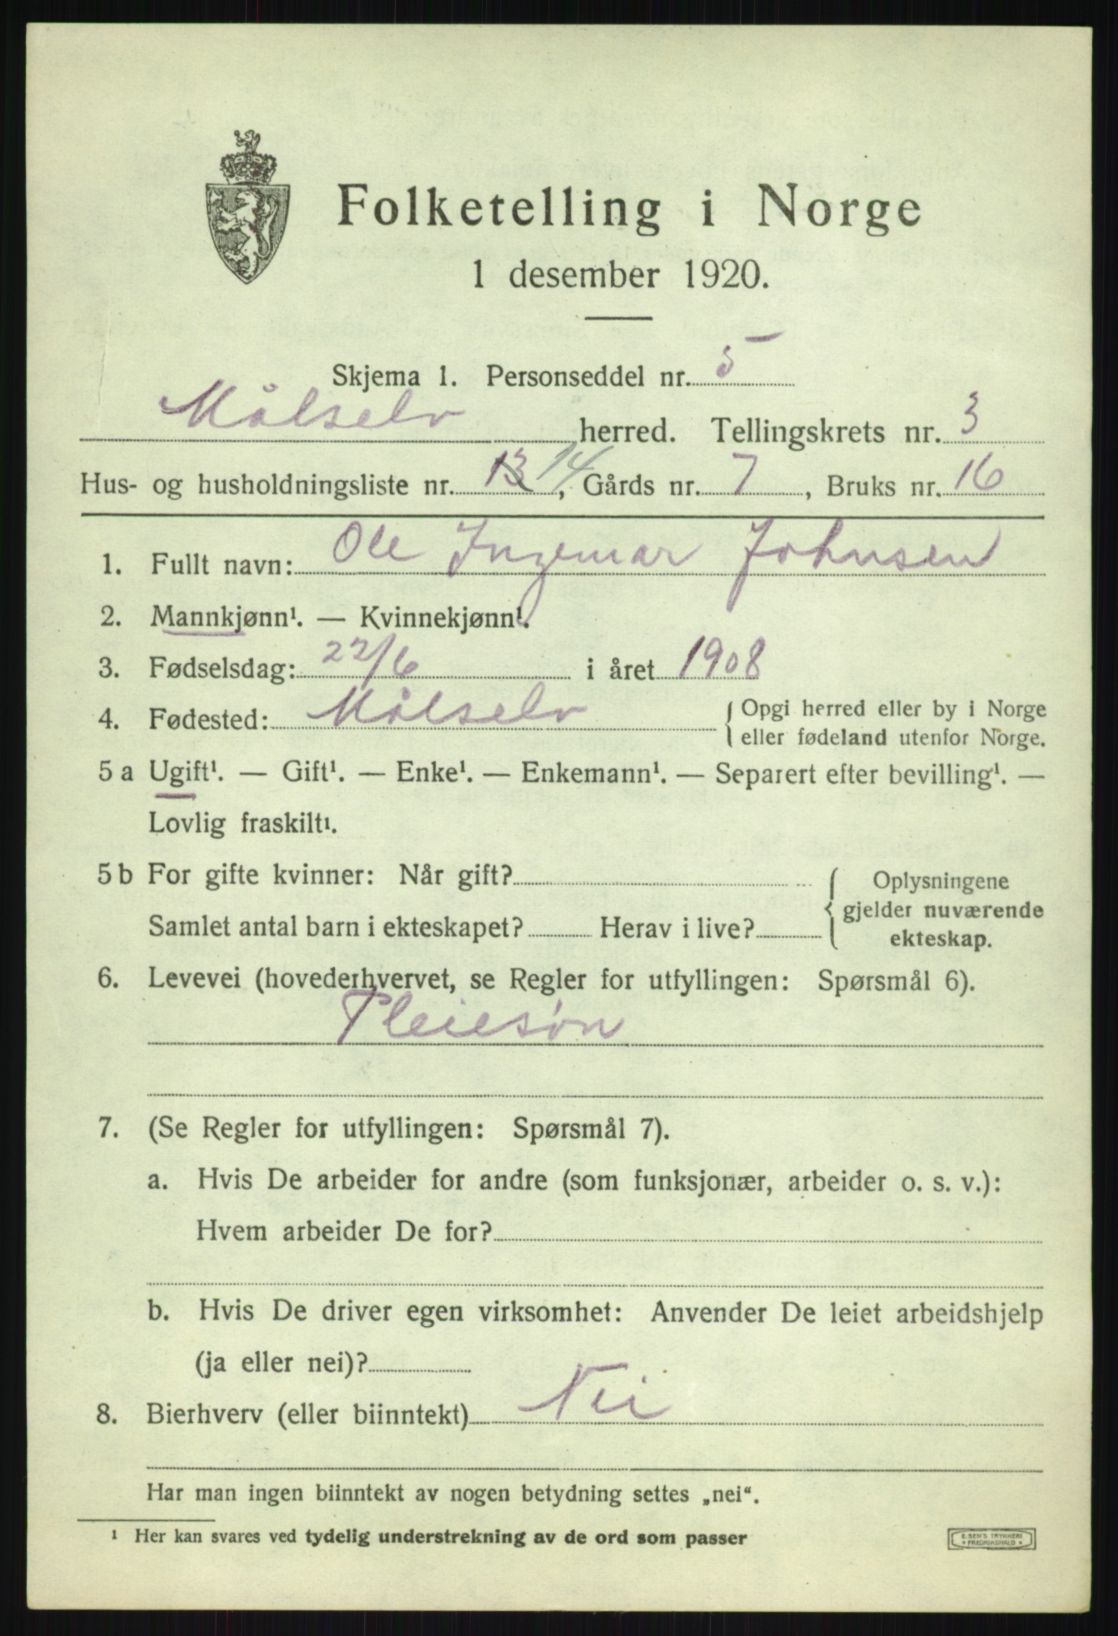 Folketelling i Norge
1 desember 1920.
Skjema 1. Personseddel nr. 5
Målselv herred. Tellingskrets nr. 3
Hus- og husholdningsliste nr. 13 14, Gårds nr. 7, Bruks nr. 16
1. Fullt navn: Ole Ingemar Johnsen
2. Mannkjønn¹. — Kvinnekjønn¹.
3. Fødselsdag: 22/6 i året 1908
4. Fødested: Målselv { Opgi herred eller by i Norge
eller fødeland utenfor Norge.
5 a Ugift¹. — Gift¹. — Enke¹. — Enkemann¹. — Separert efter bevilling¹. —
Lovlig fraskilt¹.
5 b For gifte kvinner: Når gift? { Oplysningene
Samlet antal barn i ekteskapet? Herav i live? gjelder nuværende
ekteskap.
6. Levevei (hovederhvervet, se Regler for utfyllingen: Spørsmål 6).
Pleiesøn
7. (Se Regler for utfyllingen: Spørsmål 7).
a. Hvis De arbeider for andre (som funksjonær, arbeider o. s. v.):
Hvem arbeider De for?
b. Hvis De driver egen virksomhet: Anvender De leiet arbeidshjelp
(ja eller nei)?
8. Bierhverv (eller biinntekt) Nei
Har man ingen biinntekt av nogen betydning settes „nei“.
¹ Her kan svares ved tydelig understrekning av de ord som passer